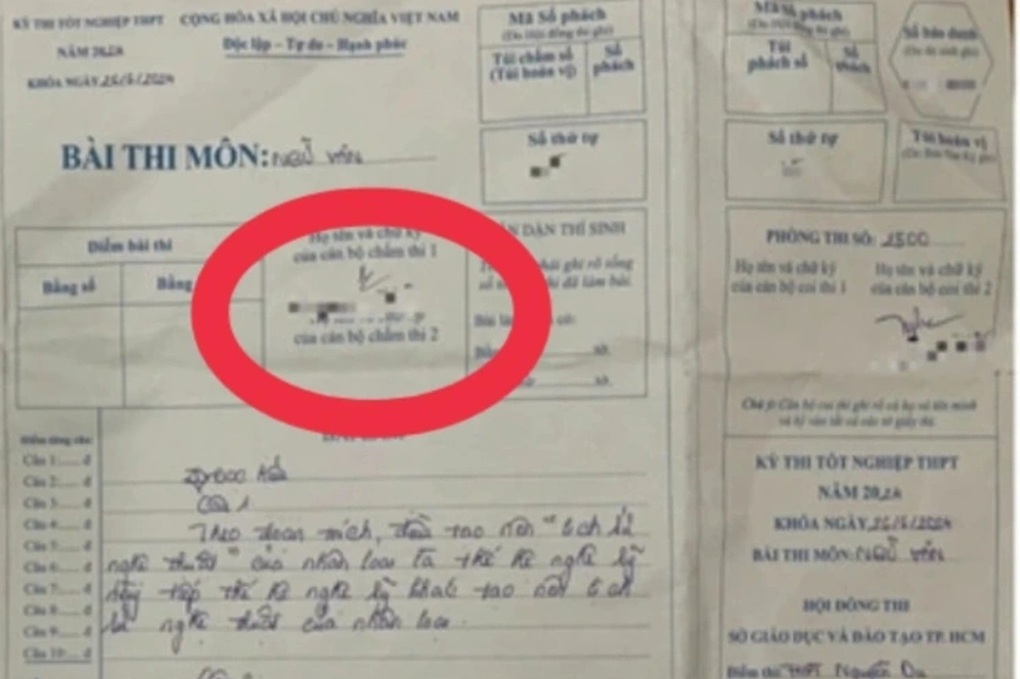 KỲ THI TỐT NGHIỆP THPT
NĂM 2024
KHÓA NGÀY 26/6/2024
CỘNG HÒA XÃ HỘI CHỦ NGHĨA VIỆT NAM
Độc lập – Tự do – Hạnh phúc
BÀI THI MÔN: NGỮ VĂN
Mã Số phách
(Do Hội đồng thi ghi)
Túi chấm số
(Túi hoán vị)
Số
phách
Số thứ tự
Điểm bài thi
Bằng số
Bằng
Họ tên và chữ ký
của cán bộ chấm thi 1
của cán bộ chấm thi 2
DẪN THÍ SINH
phải ghi rõ tổng
số đã làm bài.
Bài
tờ.
tờ.
Điểm từng câu:
Câu 1:..... đ
Câu 2:..... đ
Câu 3:..... đ
Câu 4:..... đ
Câu 5:..... đ
Câu 6:..... đ
Câu 7:..... đ
Câu 8:..... đ
Câu 9:..... đ
Câu 10:..... đ
Theo đoạn trích, điều tạo nên "lịch sử
nghệ thuật" của nhân loại là thế hệ nghệ sỹ
này tiếp thế hệ nghệ sỹ khác tạo nên lịch
sử nghệ thuật của nhân loại.
Mã Số phách
(Do Hội đồng thi ghi)
Túi
phách số
Số
phách
Số báo danh
(Do thí sinh ghi)
Số thứ tự
Túi hoán vị
PHÒNG THI SỐ: 2500
Họ tên và chữ ký
của cán bộ coi thi 1
Họ tên và chữ ký
của cán bộ coi thi 2
Chú ý: Cán bộ coi thi ghi rõ cả họ tên mình
và ký vào tất cả các tờ giấy thi.
KỲ THI TỐT NGHIỆP THPT
NĂM 2024
KHÓA NGÀY 26/6/2024
BÀI THI MÔN: NGỮ VĂN
HỘI ĐỒNG THI
SỞ GIÁO DỤC VÀ ĐÀO TẠO TP. HCM
Điểm thi: THPT Nguyễn Du